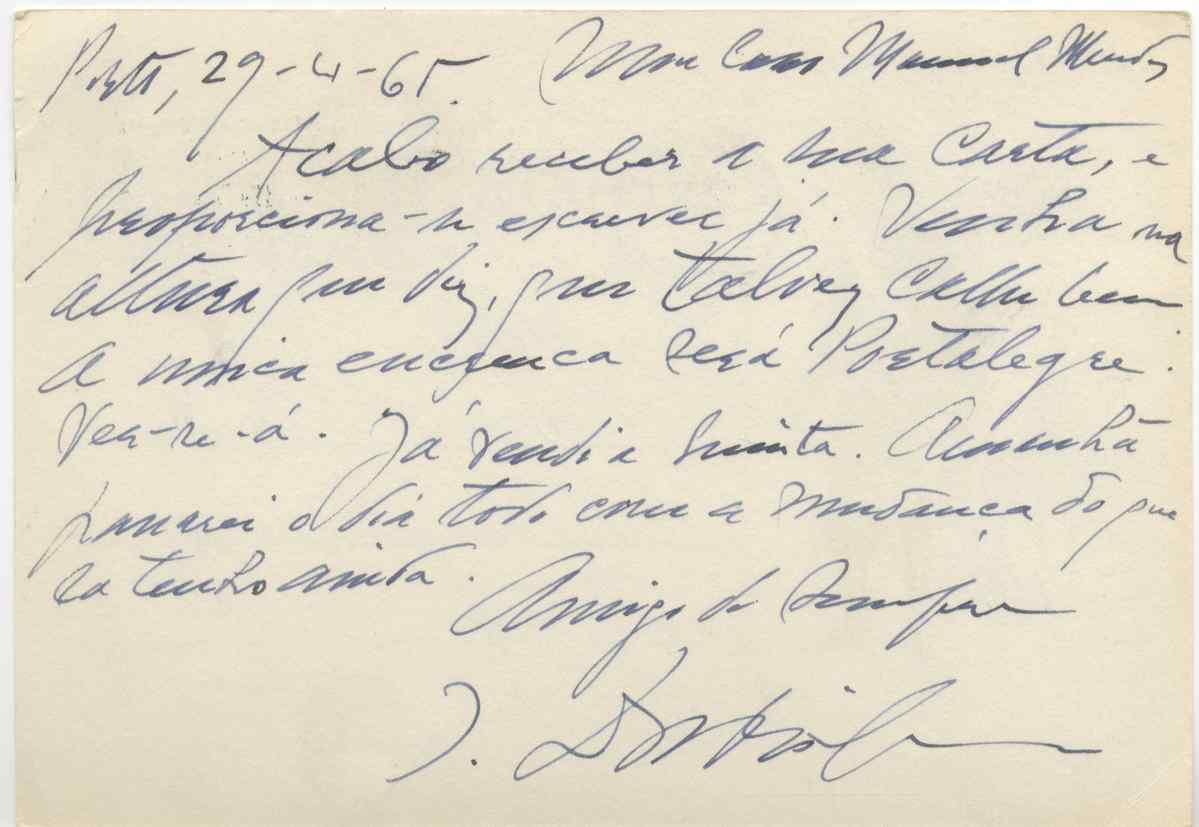 Porto, 29-4-65. Meu Caro Manuel Mendes
Acabo receber a sua Carta, e
proporciona-se escrever já. Venha na
altura que diz, que talvez calhe bem
A unica encrenca será Portalegre.
Ver-se-á. Já vendi a Quinta. Amanhã
passarei o dia todo com a mudança do que
la tenho ainda.
Amigo de sempre
J.